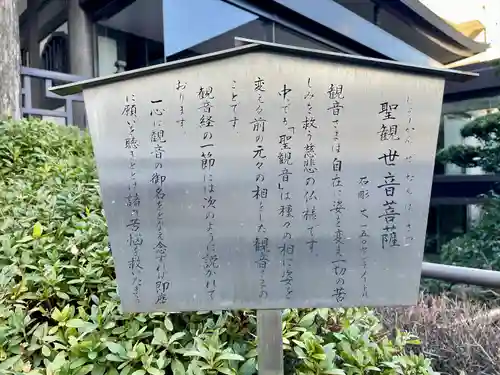 しょうかんぜおんぼさつ
聖観世音菩薩
石彫 丈、一五〇センチメートル
観音さまは自在に姿を変え一切の苦
しみを救う慈悲の仏様です。
中でも「聖観音」は種々の相に姿を
変える前の元々の相をした観音さまの
ことです。
観音経の一節には次のように説かれて
おります。
一心に観音の御名をとなえ念ずれば即応
に願いを聴きとどけ諸の苦悩を救いたまう